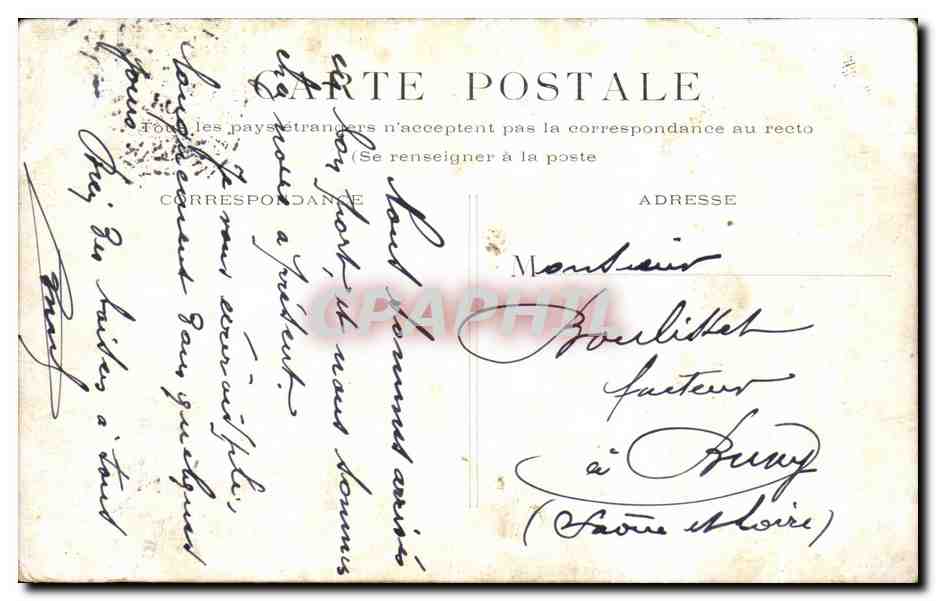 CARTE POSTALE
Tous les pays étrangers n'acceptent pas la correspondance au recto
(Se renseigner à la poste
CORRESPONDANCE
ADRESSE
Nous sommes arrivés
à bon port, et nous sommes
chez nous à présent.
Je vous écrirai plus
longuement dans quelques
jours.
Bien des baisers à tous
Monsieur
Boulisset
facteur
à
(Saône et Loire)
CPAPHIL